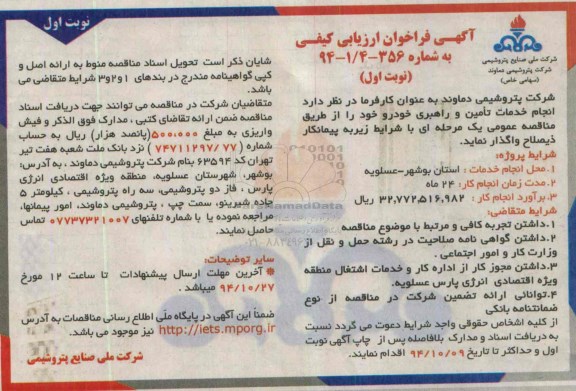 آگهی فراخوان ارزیابی کیفی
به شماره ۳۵۶-۹۴-۱/۴
(نوبت اول)
شرکت ملی صنایع پتروشیمی
شرکت پتروشیمی دماوند
(سهامی خاص)
شرکت پتروشیمی دماوند به عنوان کارفرما در نظر دارد
انجام خدمات تأمین و راهبری خودرو خود را از طریق
مناقصه عمومی یک مرحله ای با شرایط زیربه پیمانکار
ذیصلاح واگذار نماید.
شرایط پروژه:
۱.محل انجام خدمات : استان بوشهر-عسلویه
۲.مدت زمان انجام کار: ۲۴ ماه
۳.برآورد انجام کار : ۳۲,۷۷۲,۵۱۶,۹۸۲ ریال
شرایط متقاضی:
۱.داشتن تجربه کافی و مرتبط با موضوع مناقصه
۲.داشتن گواهی نامه صلاحیت در رشته حمل و نقل از
وزارت کار و امور اجتماعی .
۳.داشتن مجوز کار از اداره کار و خدمات اشتغال منطقه
ویژه اقتصادی انرژی پارس عسلویه.
۴.توانائی ارائه تضمین شرکت در مناقصه از نوع
ضمانتنامه بانکی
از کلیه اشخاص حقوقی واجد شرایط دعوت می گردد نسبت
به دریافت اسناد و مدارک بلافاصله پس از چاپ آگهی نوبت
اول و حداکثر تا تاریخ ۹۴/۱۰/۰۹ اقدام نمایند.
نوبت اول
شایان ذکر است تحویل اسناد مناقصه منوط به ارائه اصل و
کپی گواهینامه مندرج در بندهای ۱و۲و۳ شرایط متقاضی می
باشد.
متقاضیان شرکت در مناقصه می توانند جهت دریافت اسناد
مناقصه ضمن ارائه تقاضای کتبی ، مدارک فوق الذکر و فیش
واریزی به مبلغ ۵۰۰,۰۰۰(پانصد هزار) ریال به حساب
شماره (۷۷ /۷۴۷۱۱۲۹۷ ) نزد بانک ملت شعبه هفت تیر
تهران کد ۶۳۵۹۴ بنام شرکت پتروشیمی دماوند ، به آدرس:
بوشهر، شهرستان عسلویه، منطقه ویژه اقتصادی انرژی
پارس ، فاز دو پتروشیمی، سه راه پتروشیمی ، کیلومتر ۵
جاده شیرینو، سمت چپ ، پتروشیمی دماوند، امور پیمانها،
مراجعه نموده یا با شماره تلفنهای ۰۷۷۳۷۳۲۱۰۰۷ تماس
حاصل نمایند.
سایر توضیحات:
آخرین مهلت ارسال پیشنهادات تا ساعت ۱۲ مورخ
۹۴/۱۰/۲۷ میباشد .
ضمناً این آگهی در پایگاه ملّی اطلاع رسانی مناقصات به آدرس
http://iets.mporg.ir نیز موجود می باشد.
شرکت ملی صنایع پتروشیمی